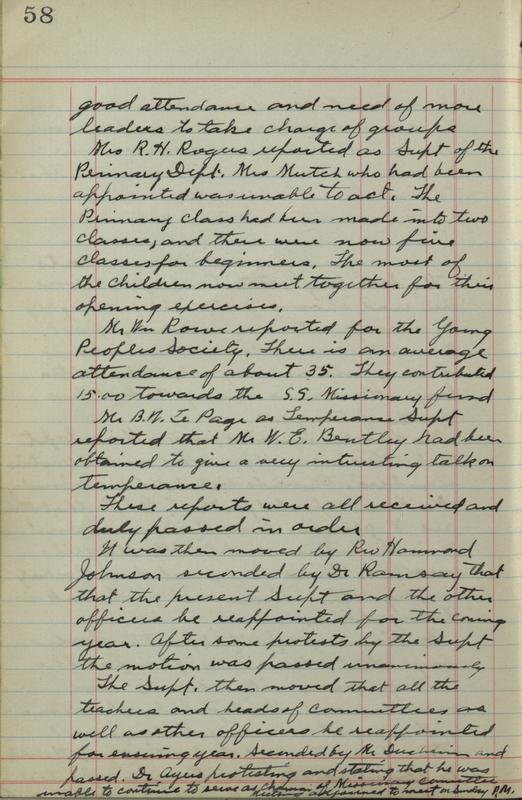 58
good attendance and need of more
leaders to take charge of groups
Mrs R.H. Rogers reported as Supt of the
Primary Dept. Mrs Mutch who had been
appointed was unable to act. The
Primary class had been made into two
classes, and there were now five
classes for beginners. The most of
the children now meet together for their
opening exercises.
Mr Wm Rowe reported for the Young
Peoples Society. There is an average
attendance of about 35. They contributed
15.00 towards the S.S. Missionary fund
Mr B.W. Le Page as Temperance Supt
reported that Mr W. E. Bentley had been
obtained to give a very interesting talk on
temperance.
These reports were all received and
duly passed in order
It was then moved by Rev Hammond
Johnson seconded by Dr Ramsay that
that the present Supt and the other
officers be reappointed for the coming
year. After some protests by the Supt
the motion was passed unanimously
The Supt. then moved that all the
teachers and heads of committees as
well as other officers be reappointed
for ensuing year. Seconded by Mr and
passed. Dr Ayers protesting and stating that he was
unable to continue to serve as Chairman of Missionary Committee
Meeting adjourned to meet on Sunday P.M.